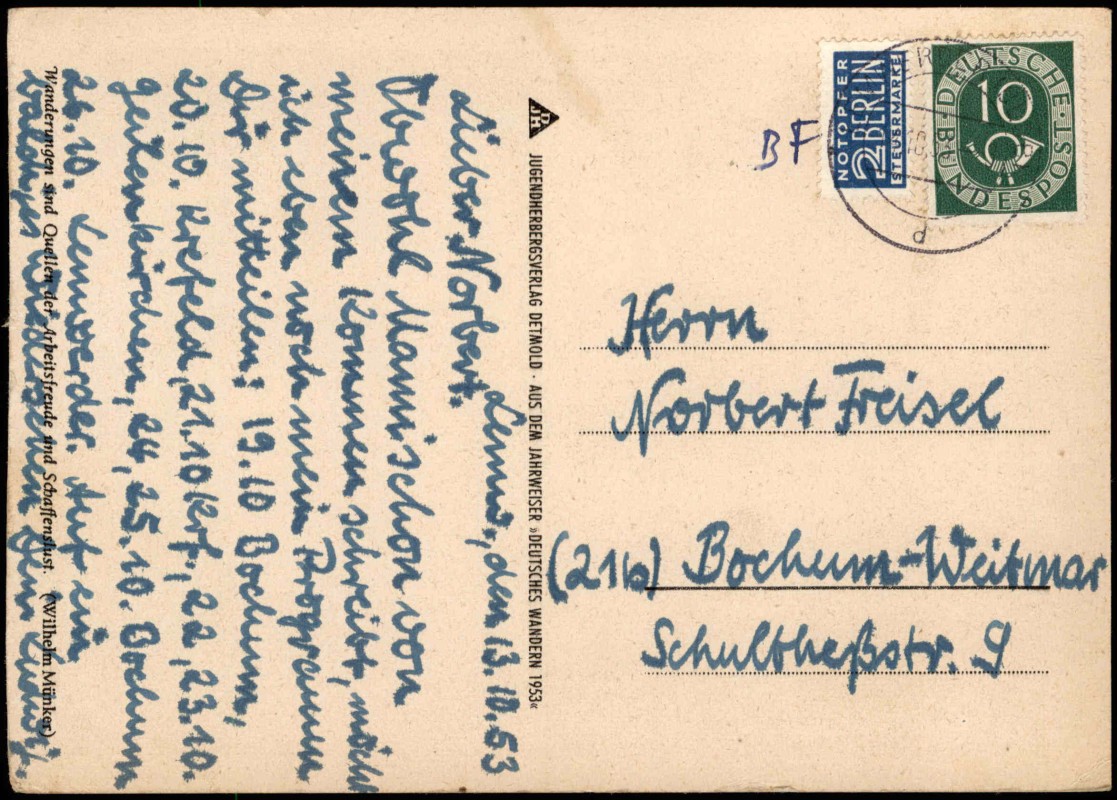 Lennw., den 13.10.53
Lieber Norbert.
Obwohl Manni schon von
meinem Kommen schreibt, möcht
ich eben noch mein Programm
Dir mitteilen: 19.10 Bochum,
20.10. Krefeld, 21.10 Krf., 22., 23.10.
Geilenkirchen, 24., 25.10. Bochum
26.10. Lennwerder. Auf ein
baldiges Wiedersehen Dein
Wanderungen sind Quellen der Arbeitsfreude und Schaffenslust. (Wilhelm Münker)
DJH
JUGENDHERBERGSVERLAG DETMOLD · AUS DEM JAHRWEISER »DEUTSCHES WANDERN 1953«
BF
NOTOPFER
2 BERLIN
STEUERMARKE
DEUTSCHE BUNDESPOST
10
d
Herrn
Norbert Freisel
(21b) Bochum-Weitmar
Schultheßstr. 9